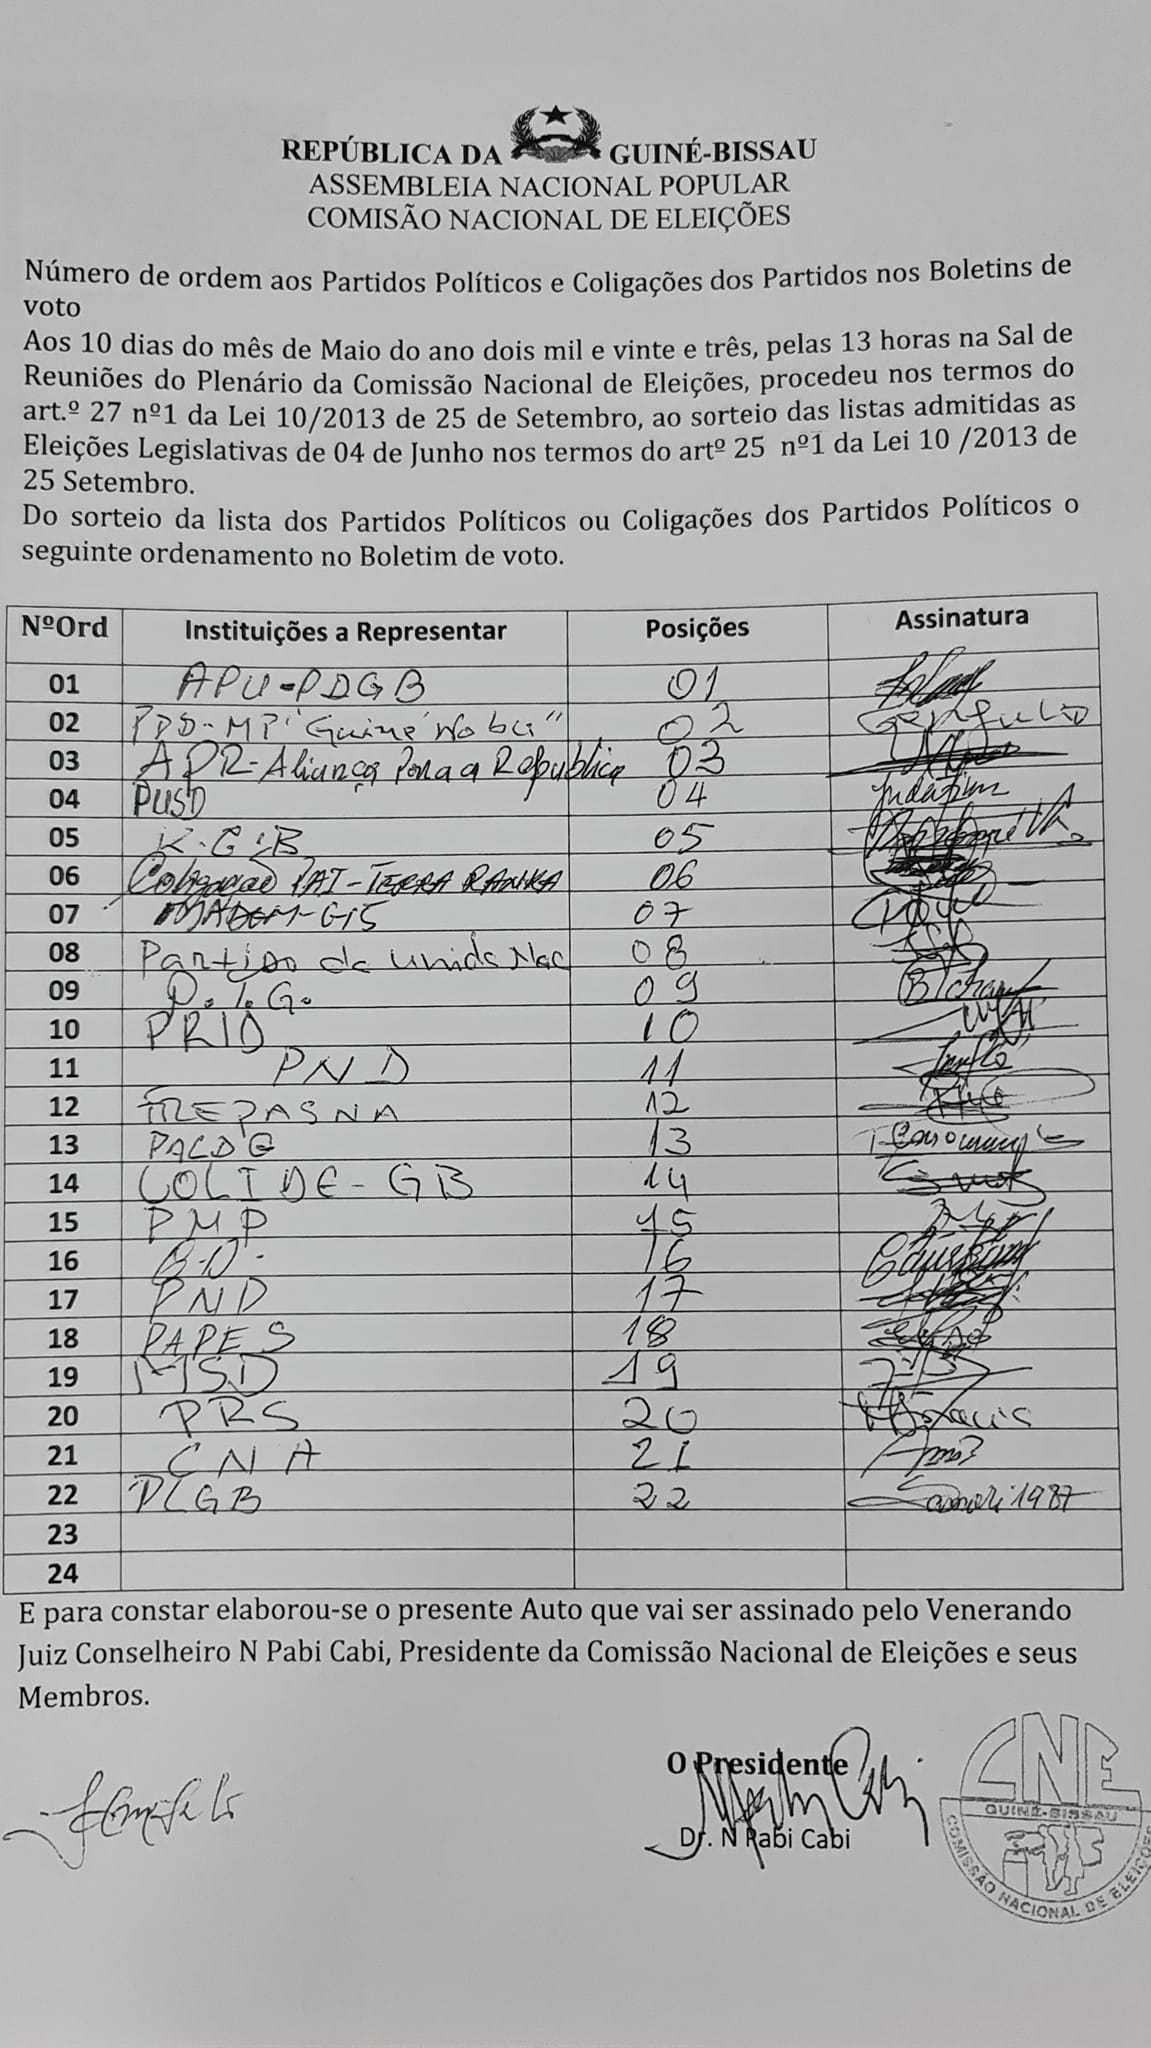 REPÚBLICA DA GUINÉ-BISSAU
ASSEMBLEIA NACIONAL POPULAR
COMISÃO NACIONAL DE ELEIÇÕES
Número de ordem aos Partidos Políticos e Coligações dos Partidos nos Boletins de
voto
Aos 10 dias do mês de Maio do ano dois mil e vinte e três, pelas 13 horas na Sal de
Reuniões do Plenário da Comissão Nacional de Eleições, procedeu nos termos do
art.º 27 nº1 da Lei 10/2013 de 25 de Setembro, ao sorteio das listas admitidas as
Eleições Legislativas de 04 de Junho nos termos do artº 25 nº1 da Lei 10 /2013 de
25 Setembro.
Do sorteio da lista dos Partidos Políticos ou Coligações dos Partidos Políticos o
seguinte ordenamento no Boletim de voto.
NºOrd Instituições a Representar Posições Assinatura
01 APU-PDGB 01
02 PDD-MP "Guiné Nobu" 02
03 APR-Aliança Para a Republica 03
04 PUSD 04
05 05
06 Coligação PAI-TERRA RANKA 06
07 MADEM-G15 07
08 Partido da Unida Nac 08
09 09
10 PRID 10
11 PND 11
12 FREPASNA 12
13 PALDG 13
14 COLIDE-GB 14
15 PMP 15
16 16
17 PND 17
18 PAPES 18
19 MSD 19
20 PRS 20
21 CNA 21
22 PLGB 22 1987
23
24
E para constar elaborou-se o presente Auto que vai ser assinado pelo Venerando
Juiz Conselheiro N Pabi Cabi, Presidente da Comissão Nacional de Eleições e seus
Membros.
O Presidente
Dr. N Pabi Cabi
CNE
GUINÉ-BISSAU
COMISSÃO NACIONAL DE ELEIÇÕES